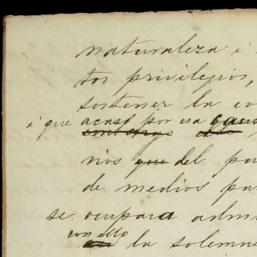 naturaleza i
tos privilegios,
sostener la co
i que acaso por esa causa
embargo
nios que del po
de medios pa
se ocupara adm
con ello
la solemn